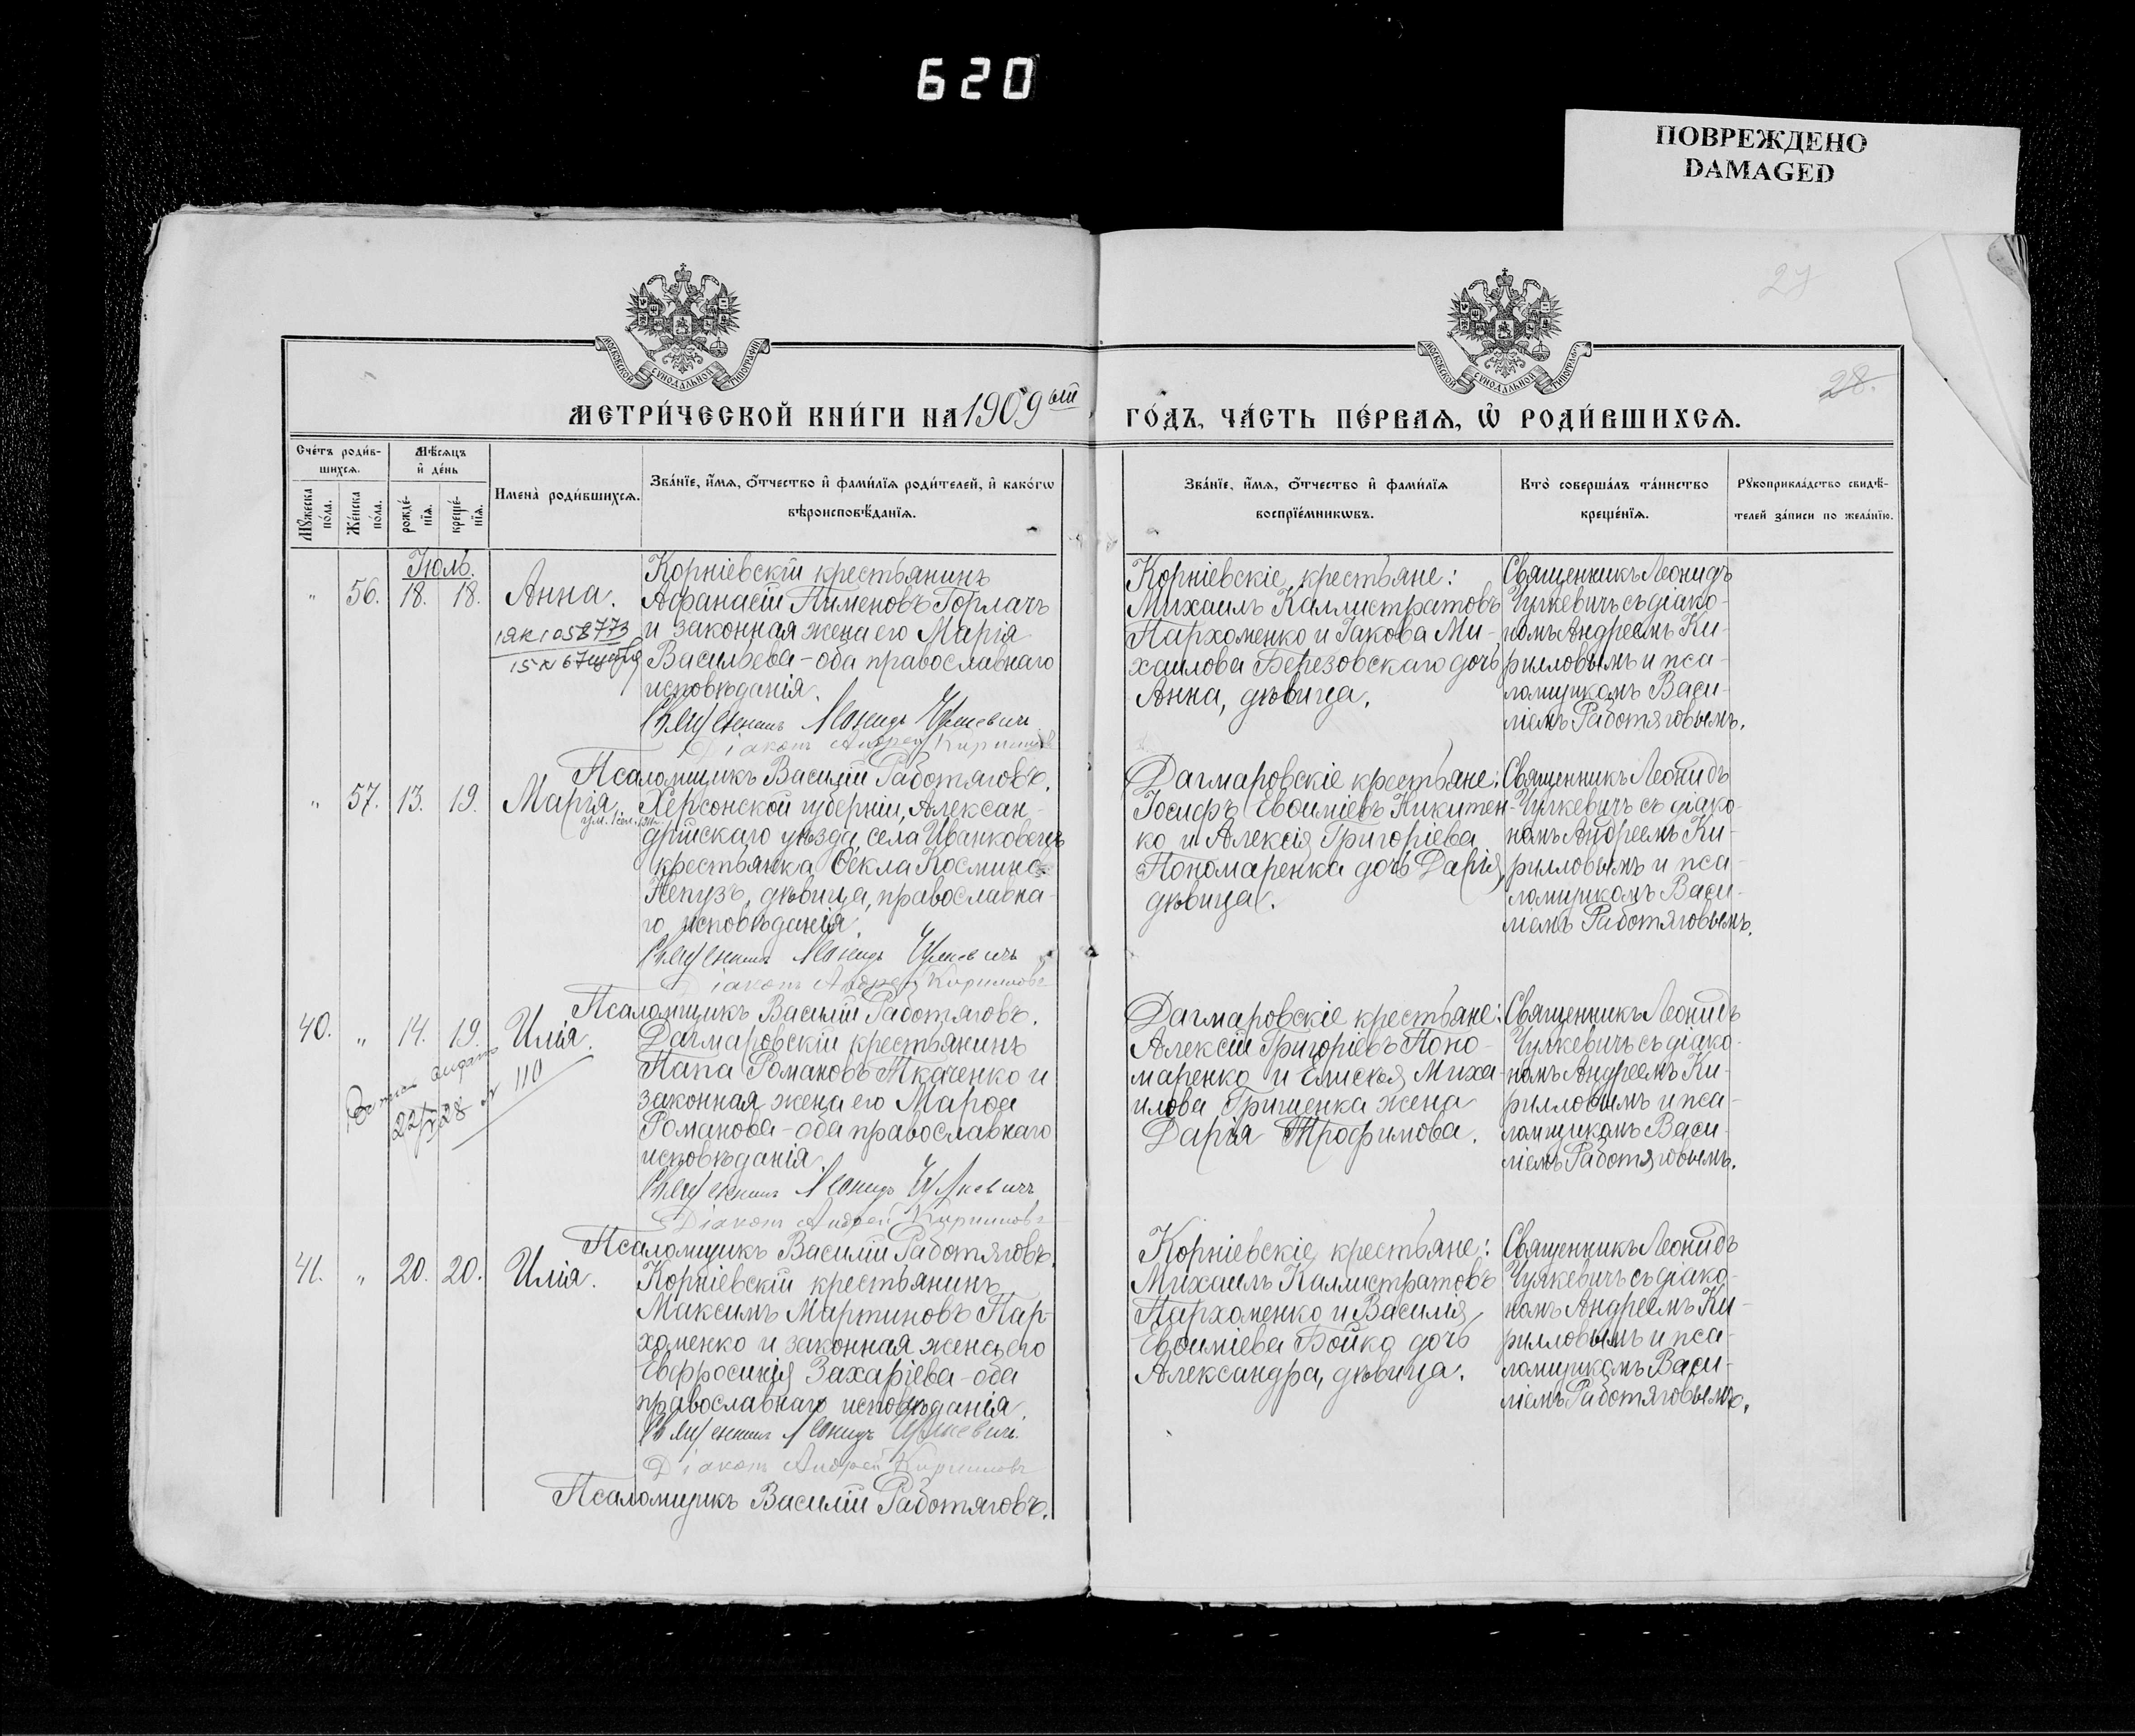 620
ПОВРЕЖДЕНО
DAMAGED
28.
МОСКОВСКОЙ СѴНОДАЛЬНОЙ ТИПОГРАФІИ
МОСКОВСКОЙ СѴНОДАЛЬНОЙ ТИПОГРАФІИ
МЕТРИ́ЧЕСКОЙ КНИ́ГИ НА 1909ый
ГО́ДЪ, ЧА́СТЬ ПЕ́РВАѦ, Ѡ҆ РОДИ́ВШИХСѦ.
Сче́тъ роди́в-
шихсѧ.
Мꙋ́жеска по́ла.
Же́нска по́ла.
Мѣ́сѧцъ
и҆ де́нь
рожде́-
нїѧ.
креще́-
нїѧ.
Имена̀ роди́вшихсѧ.
Зва́нїе, и҆́мѧ, ѻ҆́тчество и҆ фами́лїѧ роди́телей, и҆ како́гѡ
вѣроисповѣ́данїѧ.
Зва́нїе, и҆́мѧ, ѻ҆́тчество и҆ фами́лїѧ
воспрїе́мникѡвъ.
Кто̀ соверша́лъ та́инство
креще́нїѧ.
Рꙋкоприкла́дство свидѣ́-
телей за́писи по жела́нїю.
Іюль.
" 56. 18. 18. Анна.
Корніевскій крестьянинъ
Аѳанасій Пименовъ Горлачъ
и законная жена его Марія
Васильева - оба православнаго
исповѣданія.
Священникъ Леонидъ Чулкевичъ
Діаконъ Андрей Кирилловъ
Псаломщикъ Василій Работяговъ.
Корніевскіе крестьяне:
Михаилъ Каллистратовъ
Пархоменко и Іакова Ми-
хаилова Березовскаго дочь
Анна, дѣвица.
Священникъ Леонидъ
Чулкевичъ съ діако-
номъ Андреемъ Ки-
рилловымъ и пса-
ломщикомъ Васи-
ліемъ Работяговымъ.
" 57. 13. 19. Марія
Херсонской губерніи, Алексан-
дрійскаго уѣзда, села Иванковецъ
крестьянка Ѳекла Космина
Непузъ, дѣвица, православна-
го исповѣданія.
Священникъ Леонидъ Чулкевичъ
Діаконъ Андрей Кирилловъ
Псаломщикъ Василій Работяговъ.
Дагмаровскіе крестьяне:
Іосифъ Евѳиміевъ Никитен-
ко и Алексія Григоріева
Пономаренка дочь Дарія,
дѣвица.
Священникъ Леонидъ
Чулкевичъ съ діако-
номъ Андреемъ Ки-
рилловымъ и пса-
ломщикомъ Васи-
ліемъ Работяговымъ.
40. " 14. 19. Илія.
22/X 28 № 110
Дагмаровскій крестьянинъ
Папа Романовъ Ткаченко и
законная жена его Марѳа
Романова - оба православнаго
исповѣданія.
Священникъ Леонидъ Чулкевичъ
Діаконъ Андрей Кирилловъ
Псаломщикъ Василій Работяговъ.
Дагмаровскіе крестьяне:
Алексій Григоріевъ Поно-
маренко и Елисея Миха-
илова Грищенка жена
Дарія Трофимова.
Священникъ Леонидъ
Чулкевичъ съ діако-
номъ Андреемъ Ки-
рилловымъ и пса-
ломщикомъ Васи-
ліемъ Работяговымъ.
41. " 20. 20. Илія.
Корніевскій крестьянинъ
Максимъ Мартиновъ Пар-
хоменко и законная жена его
Евфросинія Захаріева - оба
православнаго исповѣданія.
Священникъ Леонидъ Чулкевичъ.
Діаконъ Андрей Кирилловъ
Псаломщикъ Василій Работяговъ.
Корніевскіе крестьяне:
Михаилъ Каллистратовъ
Пархоменко и Василія
Евѳиміева Бойко дочь
Александра, дѣвица.
Священникъ Леонидъ
Чулкевичъ съ діако-
номъ Андреемъ Ки-
рилловымъ и пса-
ломщикомъ Васи-
ліемъ Работяговымъ.